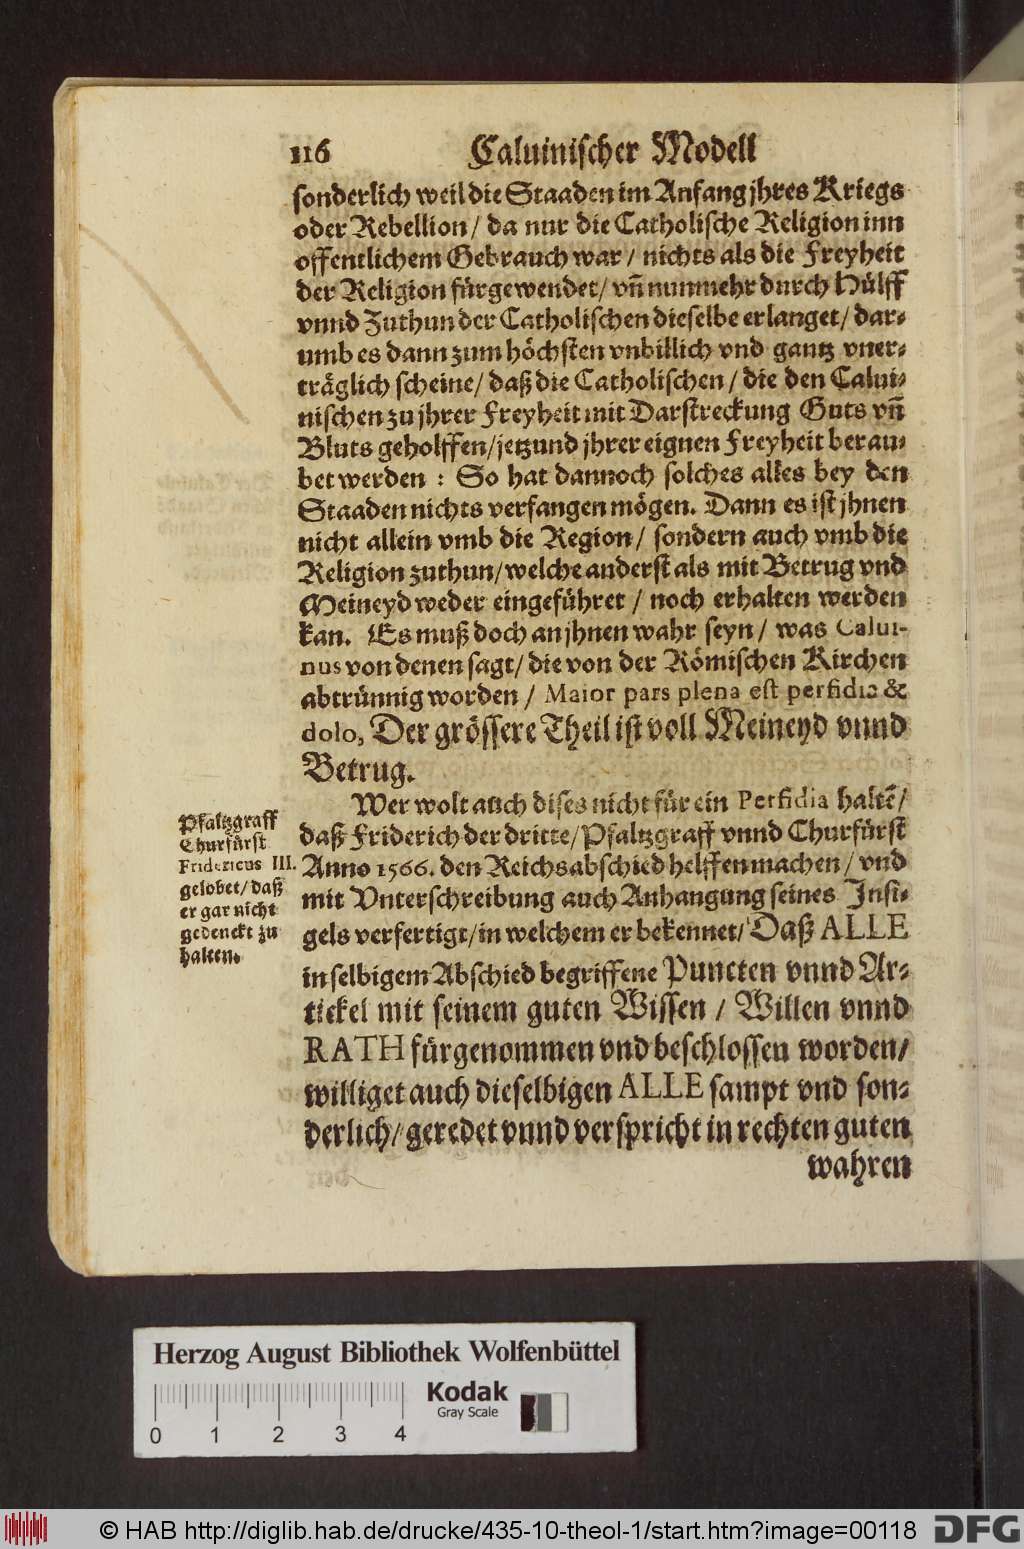 116 Caluinischer Modell
sonderlich weil die Staaden im Anfang jhres Kriegs
oder Rebellion / da nur die Catholische Religion inn
offentlichem Gebrauch war / nichts als die Freyheit
der Religion fürgewendet / vñ nunmehr durch Hülff
vnnd Zuthun der Catholischen dieselbe erlanget / dar-
umb es dann zum höchsten vnbillich vnd gantz vner-
träglich scheine / daß die Catholischen / die den Calui-
nischen zu jhrer Freyheit mit Darstreckung Guts vñ
Bluts geholffen / jetzund jhrer eignen Freyheit berau-
bet werden : So hat dannoch solches alles bey den
Staaden nichts verfangen mögen. Dann es ist jhnen
nicht allein vmb die Region / sondern auch vmb die
Religion zuthun / welche anderst als mit Betrug vnd
Meineyd weder eingeführet / noch erhalten werden
kan. Es muß doch an jhnen wahr seyn / was Calui-
nus von denen sagt / die von der Römischen Kirchen
abtrünnig worden / Maior pars plena est perfidia &
dolo, Der grössere Theil ist voll Meineyd vnnd
Betrug.
Wer wolt auch dises nicht für ein Perfidia haltē /
daß Friderich der dritte / Pfaltzgraff vnnd Churfürst
Anno 1566. den Reichsabschied helffen machen / vnd
mit Vnterschreibung auch Anhangung seines Insi-
gels verfertigt / in welchem er bekennet / Daß ALLE
in selbigem Abschied begriffene Puncten vnnd Ar-
tickel mit seinem guten Wissen / Willen vnnd
RATH fürgenommen vnd beschlossen worden /
williget auch dieselbigen ALLE sampt vnd son-
derlich / geredet vnnd verspricht in rechten guten
wahren
Pfaltzgraff
Churfürst
Fridericus III.
gelobet / daß
er gar nicht
gedenckt zu
halten.
Herzog August Bibliothek Wolfenbüttel
Kodak
Gray Scale
0 1 2 3 4
© HAB http://diglib.hab.de/drucke/435-10-theol-1/start.htm?image=00118
DFG